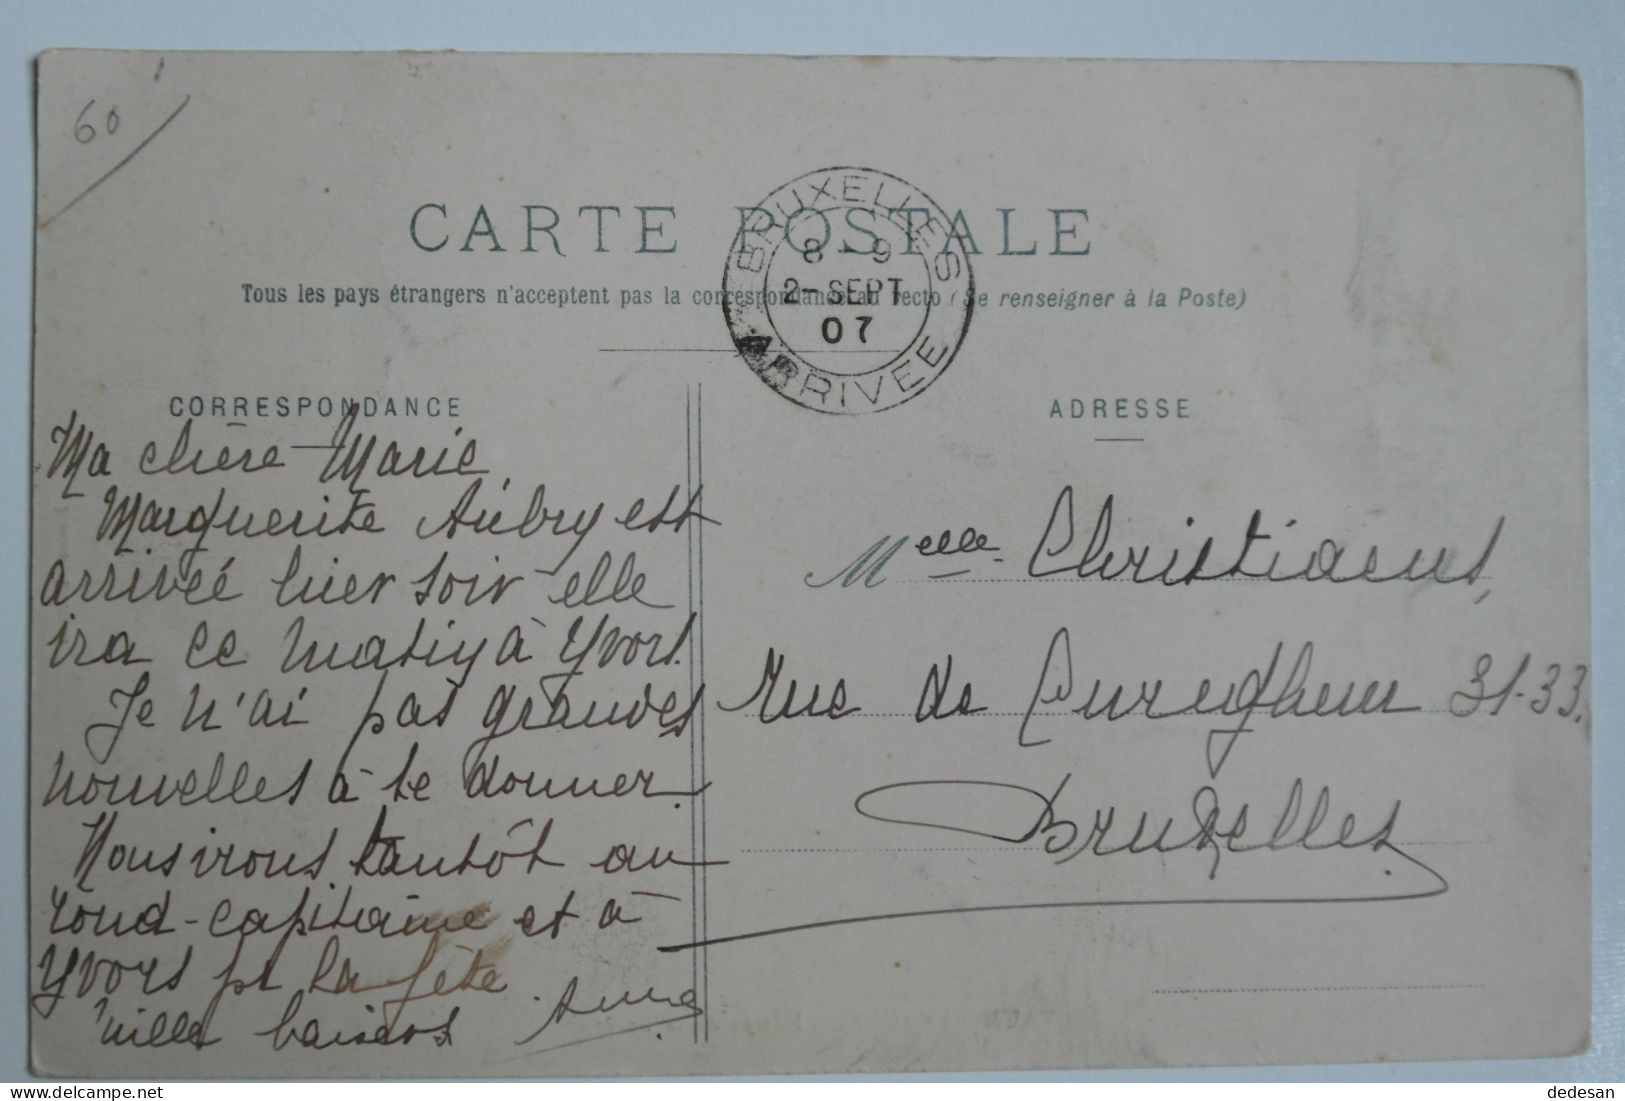 60
CARTE POSTALE
Tous les pays étrangers n'acceptent pas la correspondance au recto (Se renseigner à la Poste)
BRUXELLES
8-9
2-SEPT
07
ARRIVEE
CORRESPONDANCE
Ma chère Marie
Marguerite Aubry est
arrivée hier soir elle
ira ce matin à Yvors.
Je n'ai pas grandes
nouvelles à te donner.
Nous irons tantôt au
rond-capitaine et à
Yvors pr la fête
mille baisers Anna
ADRESSE
Melle Christiaens,
rue de Cureghem 31-33.
Bruxelles
dedesan